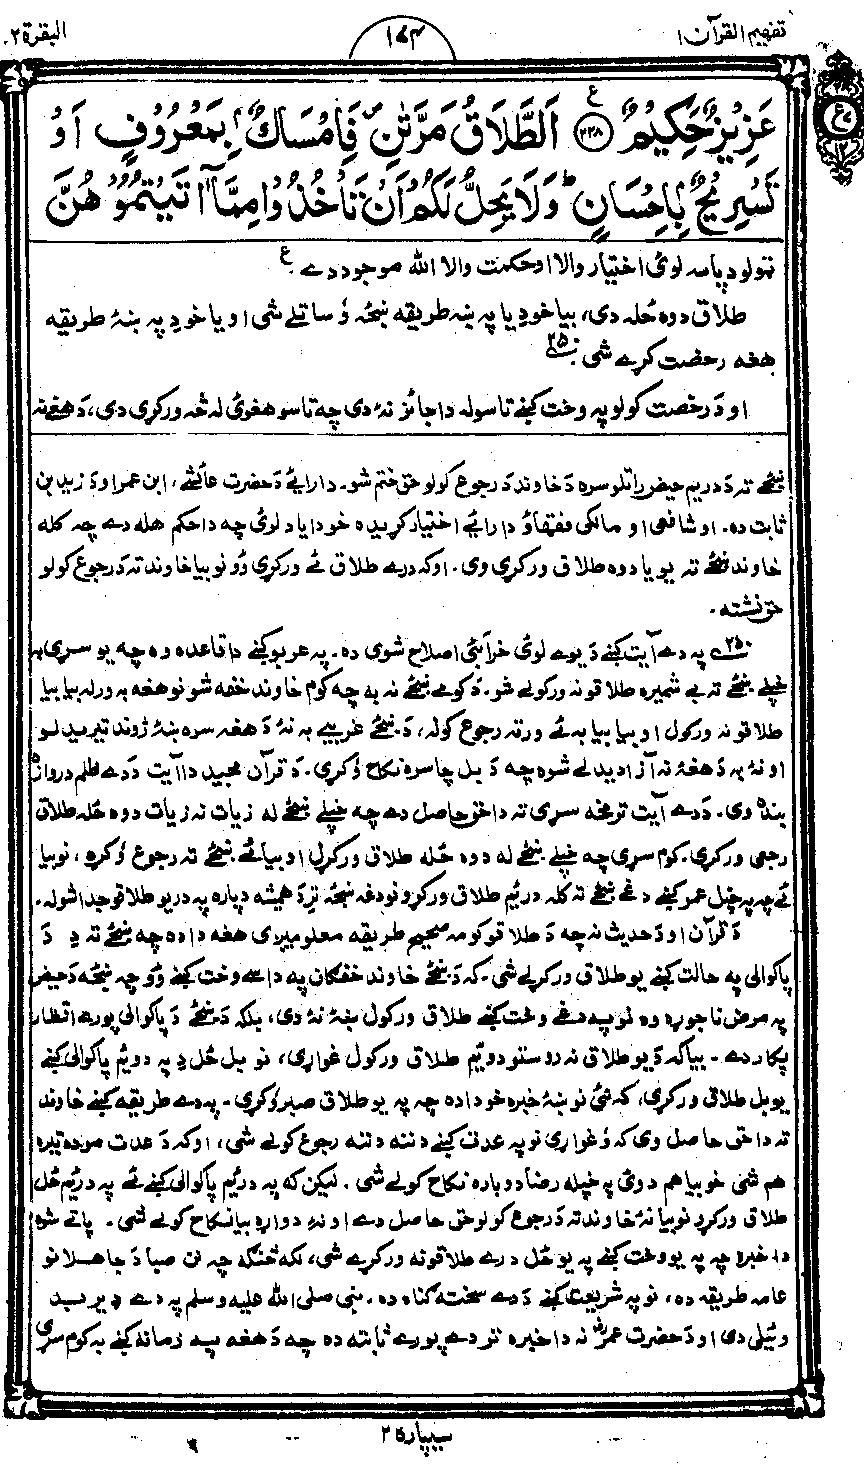 تفهیم القرآن ۱
۱۷۴
البقرة ۲
عَزِيْزٌ حَكِيْمٌ ۝۲۲۸ اَلطَّلَاقُ مَرَّتٰنِ ۪ فَاِمْسَاكٌۢ بِمَعْرُوْفٍ اَوْ
تَسْرِيْحٌۢ بِاِحْسَانٍ ؕ وَلَا يَحِلُّ لَكُمْ اَنْ تَاْخُذُوْا مِمَّاۤ اٰتَيْتُمُوْهُنَّ
ټولو دپاسه لوئ اختیار والا او حکمت والا الله موجود دے ع
طلاق دوه ځله دی، بیا خو د یا په ښه طریقه ښځه وساتلے شی او یا خود په ښۀ طریقه
هغه رخصت کړے شی ۲۵۰
او د رخصت کولو په وخت کښے تاسو له دا جائز نۀ دی چه تاسو هغوئ له څه ورکړی دی، د هغے نه
ښځے ته د دریم حیض راتلو سره د خاوند د رجوع کولو حق ختم شو۔ دا رایئے د حضرت عائشے، ابن عمر او د زید بن
ثابت ده۔ او شافعی او مالکی فقهاؤ دا رایئے اختیار کړیده خو دا یاد لوئ چه دا حکم هله دے چه کله
خاوند ښځے ته یو یا دوه طلاق ورکړی وی۔ او که درے طلاق ئے ورکړی وو نو بیا خاوند ته د رجوع کولو
حق نشته۔
۲۵۰ په دے آیت کښے د یوے لوئ خرابئ اصلاح شوی ده۔ په عربو کښے دا قاعده وه چه یو سړی به
خپلے ښځے ته بے شمیره طلاقونه ورکولے شو۔ د کومے ښځے نه به چه کوم خاوند خفه شو نو هغه به ورله بیا بیا
طلاقونه ورکول او بیا بیا به ئے ورته رجوع کوله، د ښځے غریبے به نۀ د هغه سره ښۀ ژوند تیریدلو
او نۀ به د هغۀ نه آزادیدلے شوه چه د بل چا سره نکاح وکړی۔ د قرآن مجید دا آیت د دے ظلم دروازه
بنده وی۔ د دے آیت ترمخه سړی ته دا حق حاصل دے چه خپلے ښځے له زیات نه زیات دوه ځله طلاق
رجعی ورکړی۔ کوم سړی چه خپلے ښځے له دوه ځله طلاق ورکړل او بیا ئے ښځے ته رجوع وکړه، نو بیا
ئے چه په خپل عمر کښے دغے ښځے ته کله دریم طلاق ورکړو نو دغه ښځه ترے همیشه دپاره په دریو طلاقو جدا شوله۔
د قرآن او د حدیث نه چه د طلاقو کومه صحیح طریقه معلومیږی هغه دا ده چه ښځے ته د
پاکوالی په حالت کښے یو طلاق ورکړلے شی۔ که د ښځے خاوند خفگان په داسے وخت کښے وو چه ښځه د حیض
په مرض ناجوړه وه نو په دغے وخت کښے طلاق ورکول ښۀ نۀ دی، بلکه د ښځے د پاکوالی پورے انتظار
پکار دے۔ بیا که د یو طلاق نه روستو دویم طلاق ورکول غواړی، نو بل ځل د په دویم پاکوالی کښے
یو بل طلاق ورکړی، که نئ نو ښۀ خبره خو دا ده چه په یو طلاق صبر وکړی۔ په دے طریقه کښے خاوند
ته دا حق حاصل وی که وغواړی نو په عدت کښے دننه دننه رجوع کولے شی، او که د عدت موده تیره
هم شی خو بیا هم دوئ په خپله رضا دوباره نکاح کولے شی۔ لیکن که په دریم پاکوالی کښے ئے په دریم ځل
طلاق ورکړو نو بیا نۀ خاوند ته د رجوع کولو حق حاصل دے او نۀ دواړه بیا نکاح کولے شی۔ پاتے شوه
دا خبره چه په یو وخت کښے په یو ځل درے طلاقونه ورکړے شی، لکه څنگه چه نن صبا د جاهلانو
عامه طریقه ده، نو په شریعت کښے د دے سخته گناه ده۔ نبی صلی الله علیه وسلم په دے ډیر بد
وئیلی دی او د حضرت عمرؓ نه دا خبره تر دے پورے ثابته ده چه د هغه په زمانه کښے به کوم سړی
سیپاره ۲